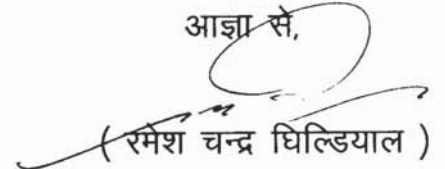 आज्ञा से,
( रमेश चन्द्र घिल्डियाल )